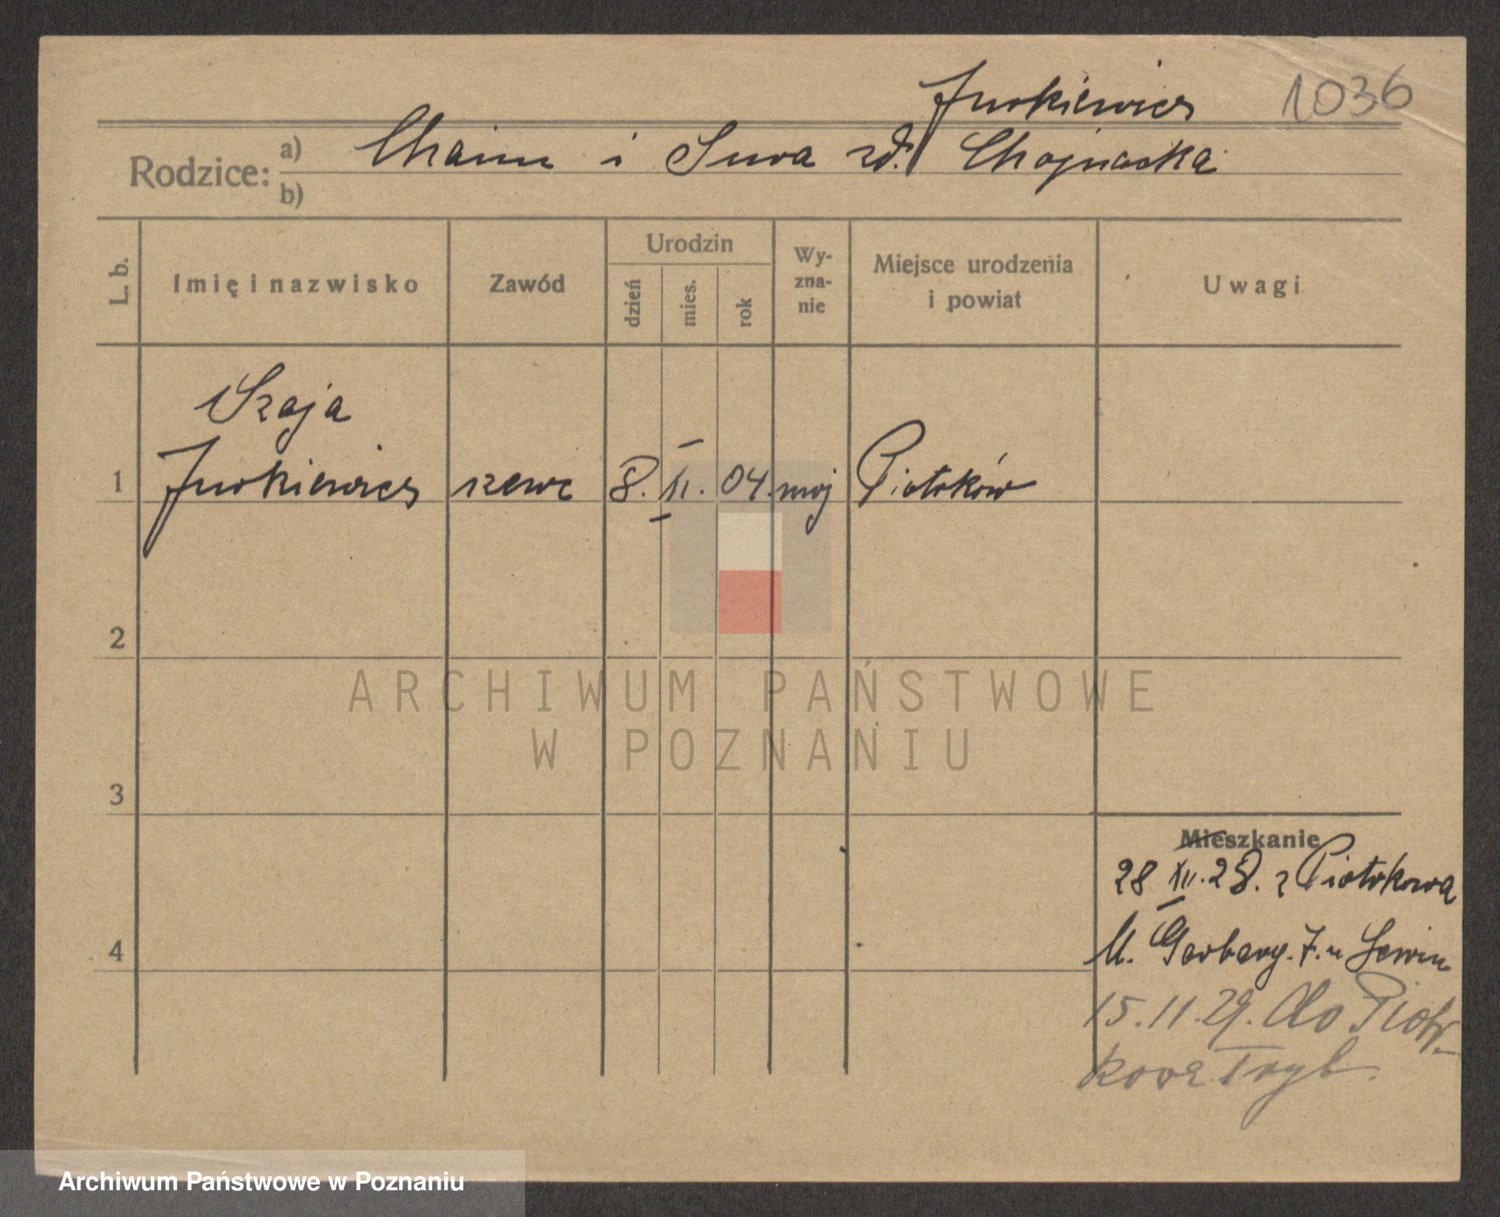 Jurkiewicz 1036
Rodzice: a) Chaim i Sura zd. Chojnacka
b)
L. b. Imię i nazwisko Zawód Urodzin dzień mies. rok Wy-zna-nie Miejsce urodzenia i powiat Uwagi
Szaja
1 Jurkiewicz szewc 8. XII. 04. moj Piotrków
2
ARCHIWUM PAŃSTWOWE
W POZNANIU
3
Mieszkanie
28 XII. 28. z Piotrkowa
4 M. Garbary. 7. u Lewin
15.11.29. do Piotr-
kowa Tryb.
Archiwum Państwowe w Poznaniu